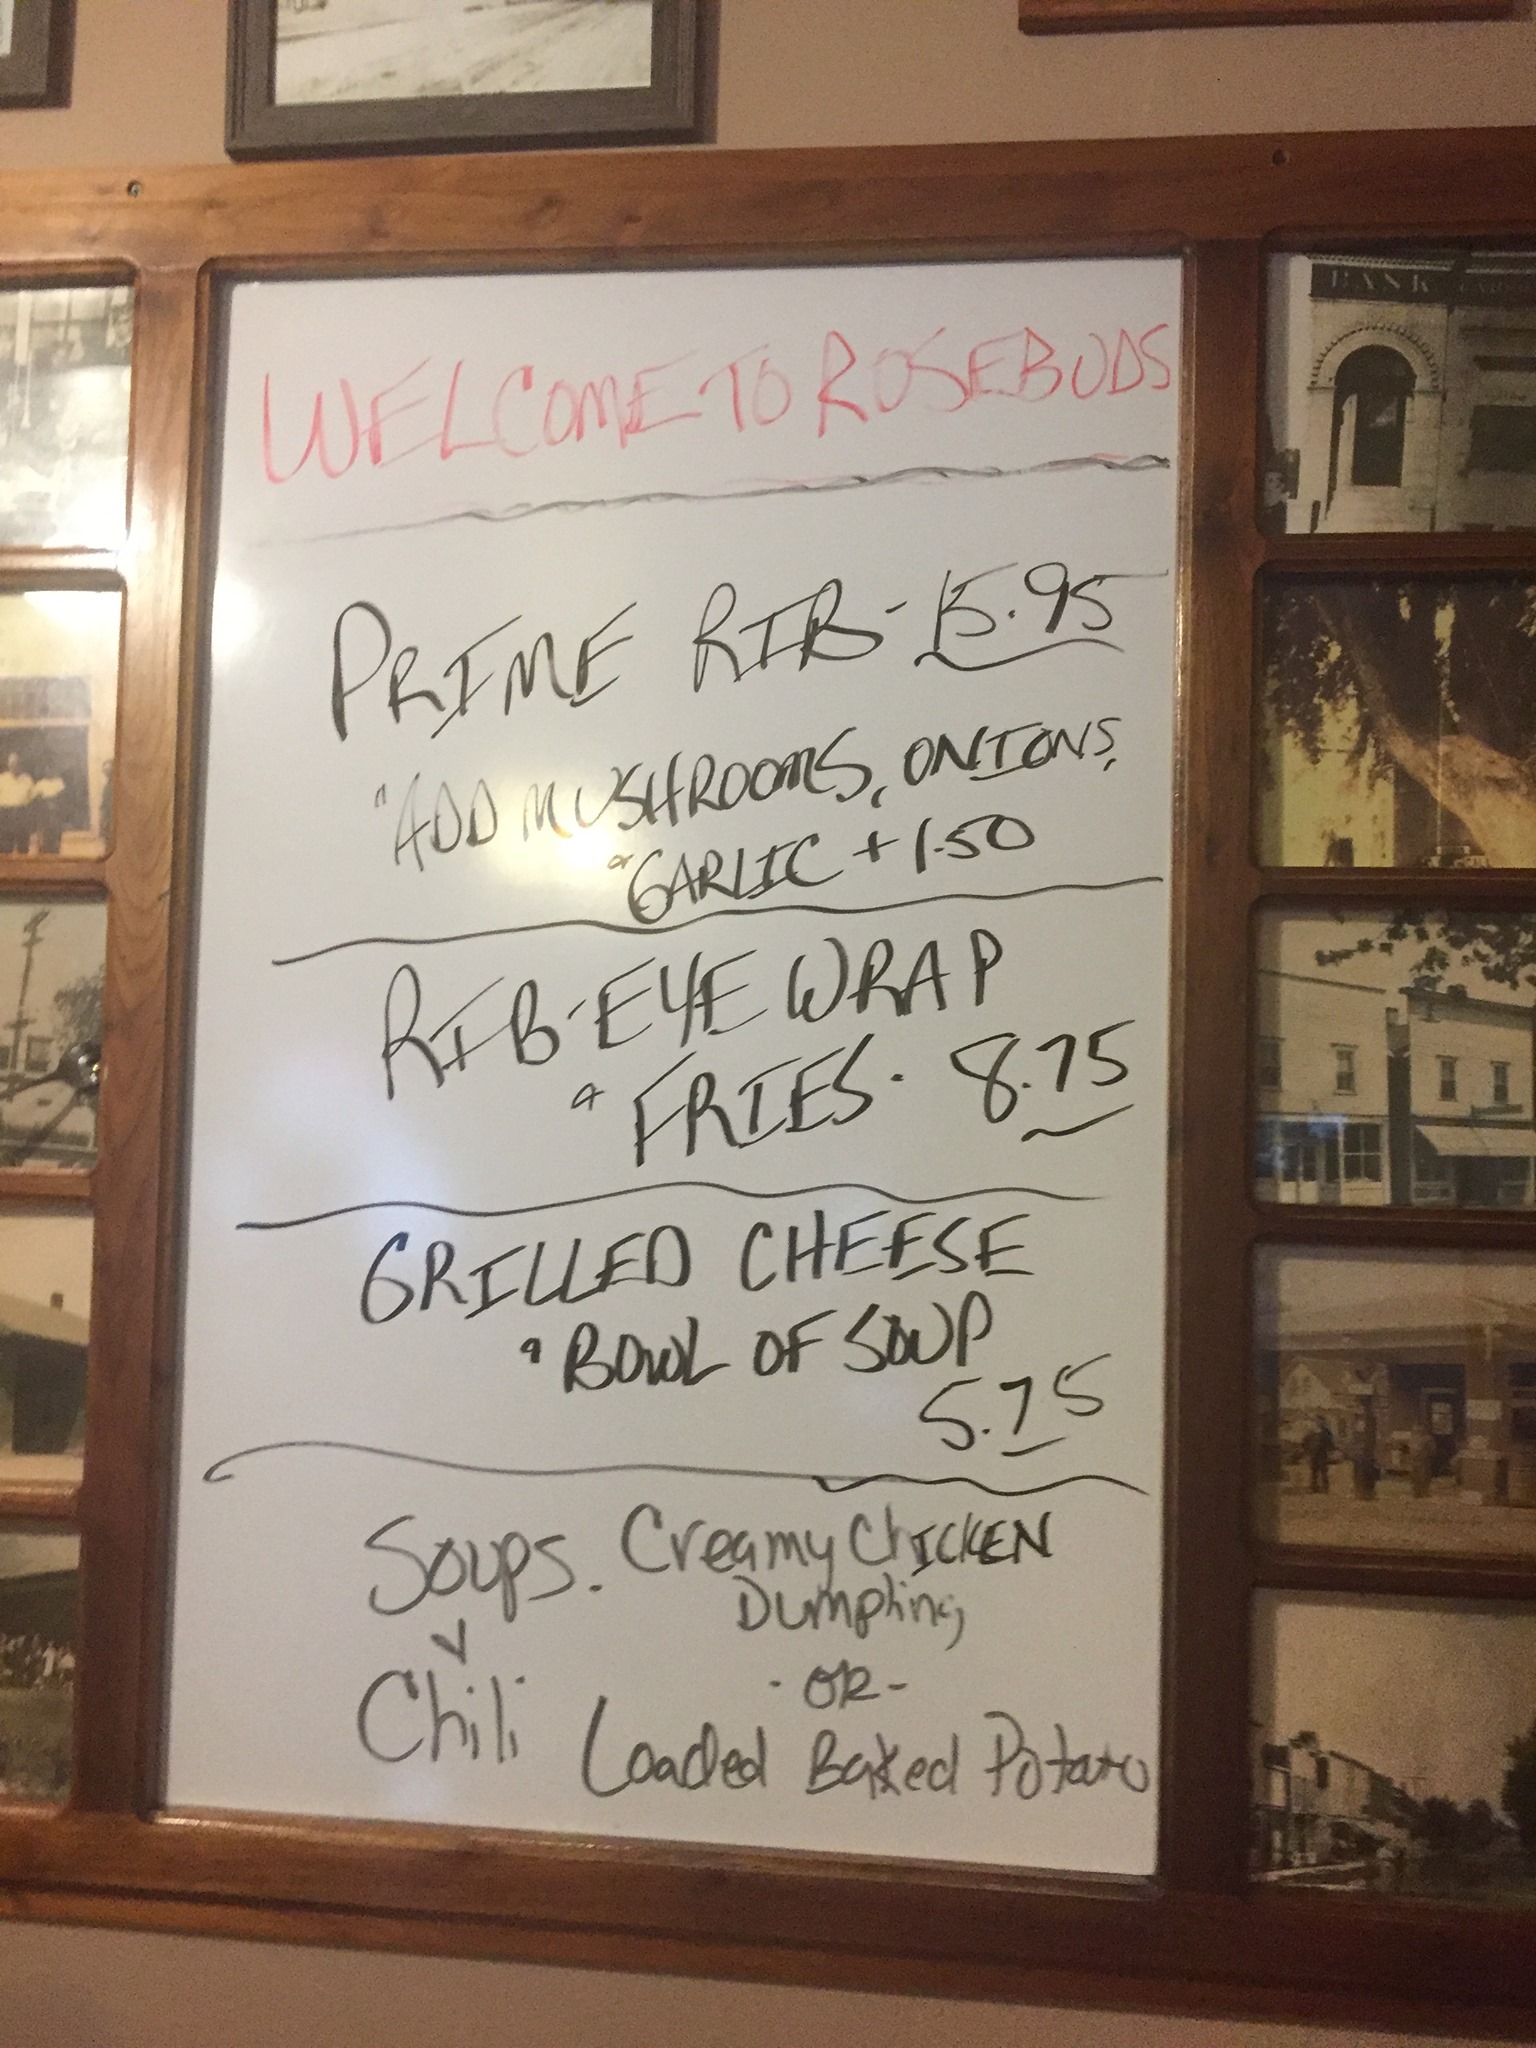 WELCOME TO ROSEBUDS
PRIME RIB - 15.95
"ADD MUSHROOMS, ONIONS,
or GARLIC + 1.50
RIB-EYE WRAP
& FRIES - 8.75
GRILLED CHEESE
& BOWL OF SOUP
5.75
Soups. Creamy ChICKEN
Dumpling
Chili
- OR -
Loaded Baked Potato
BANK